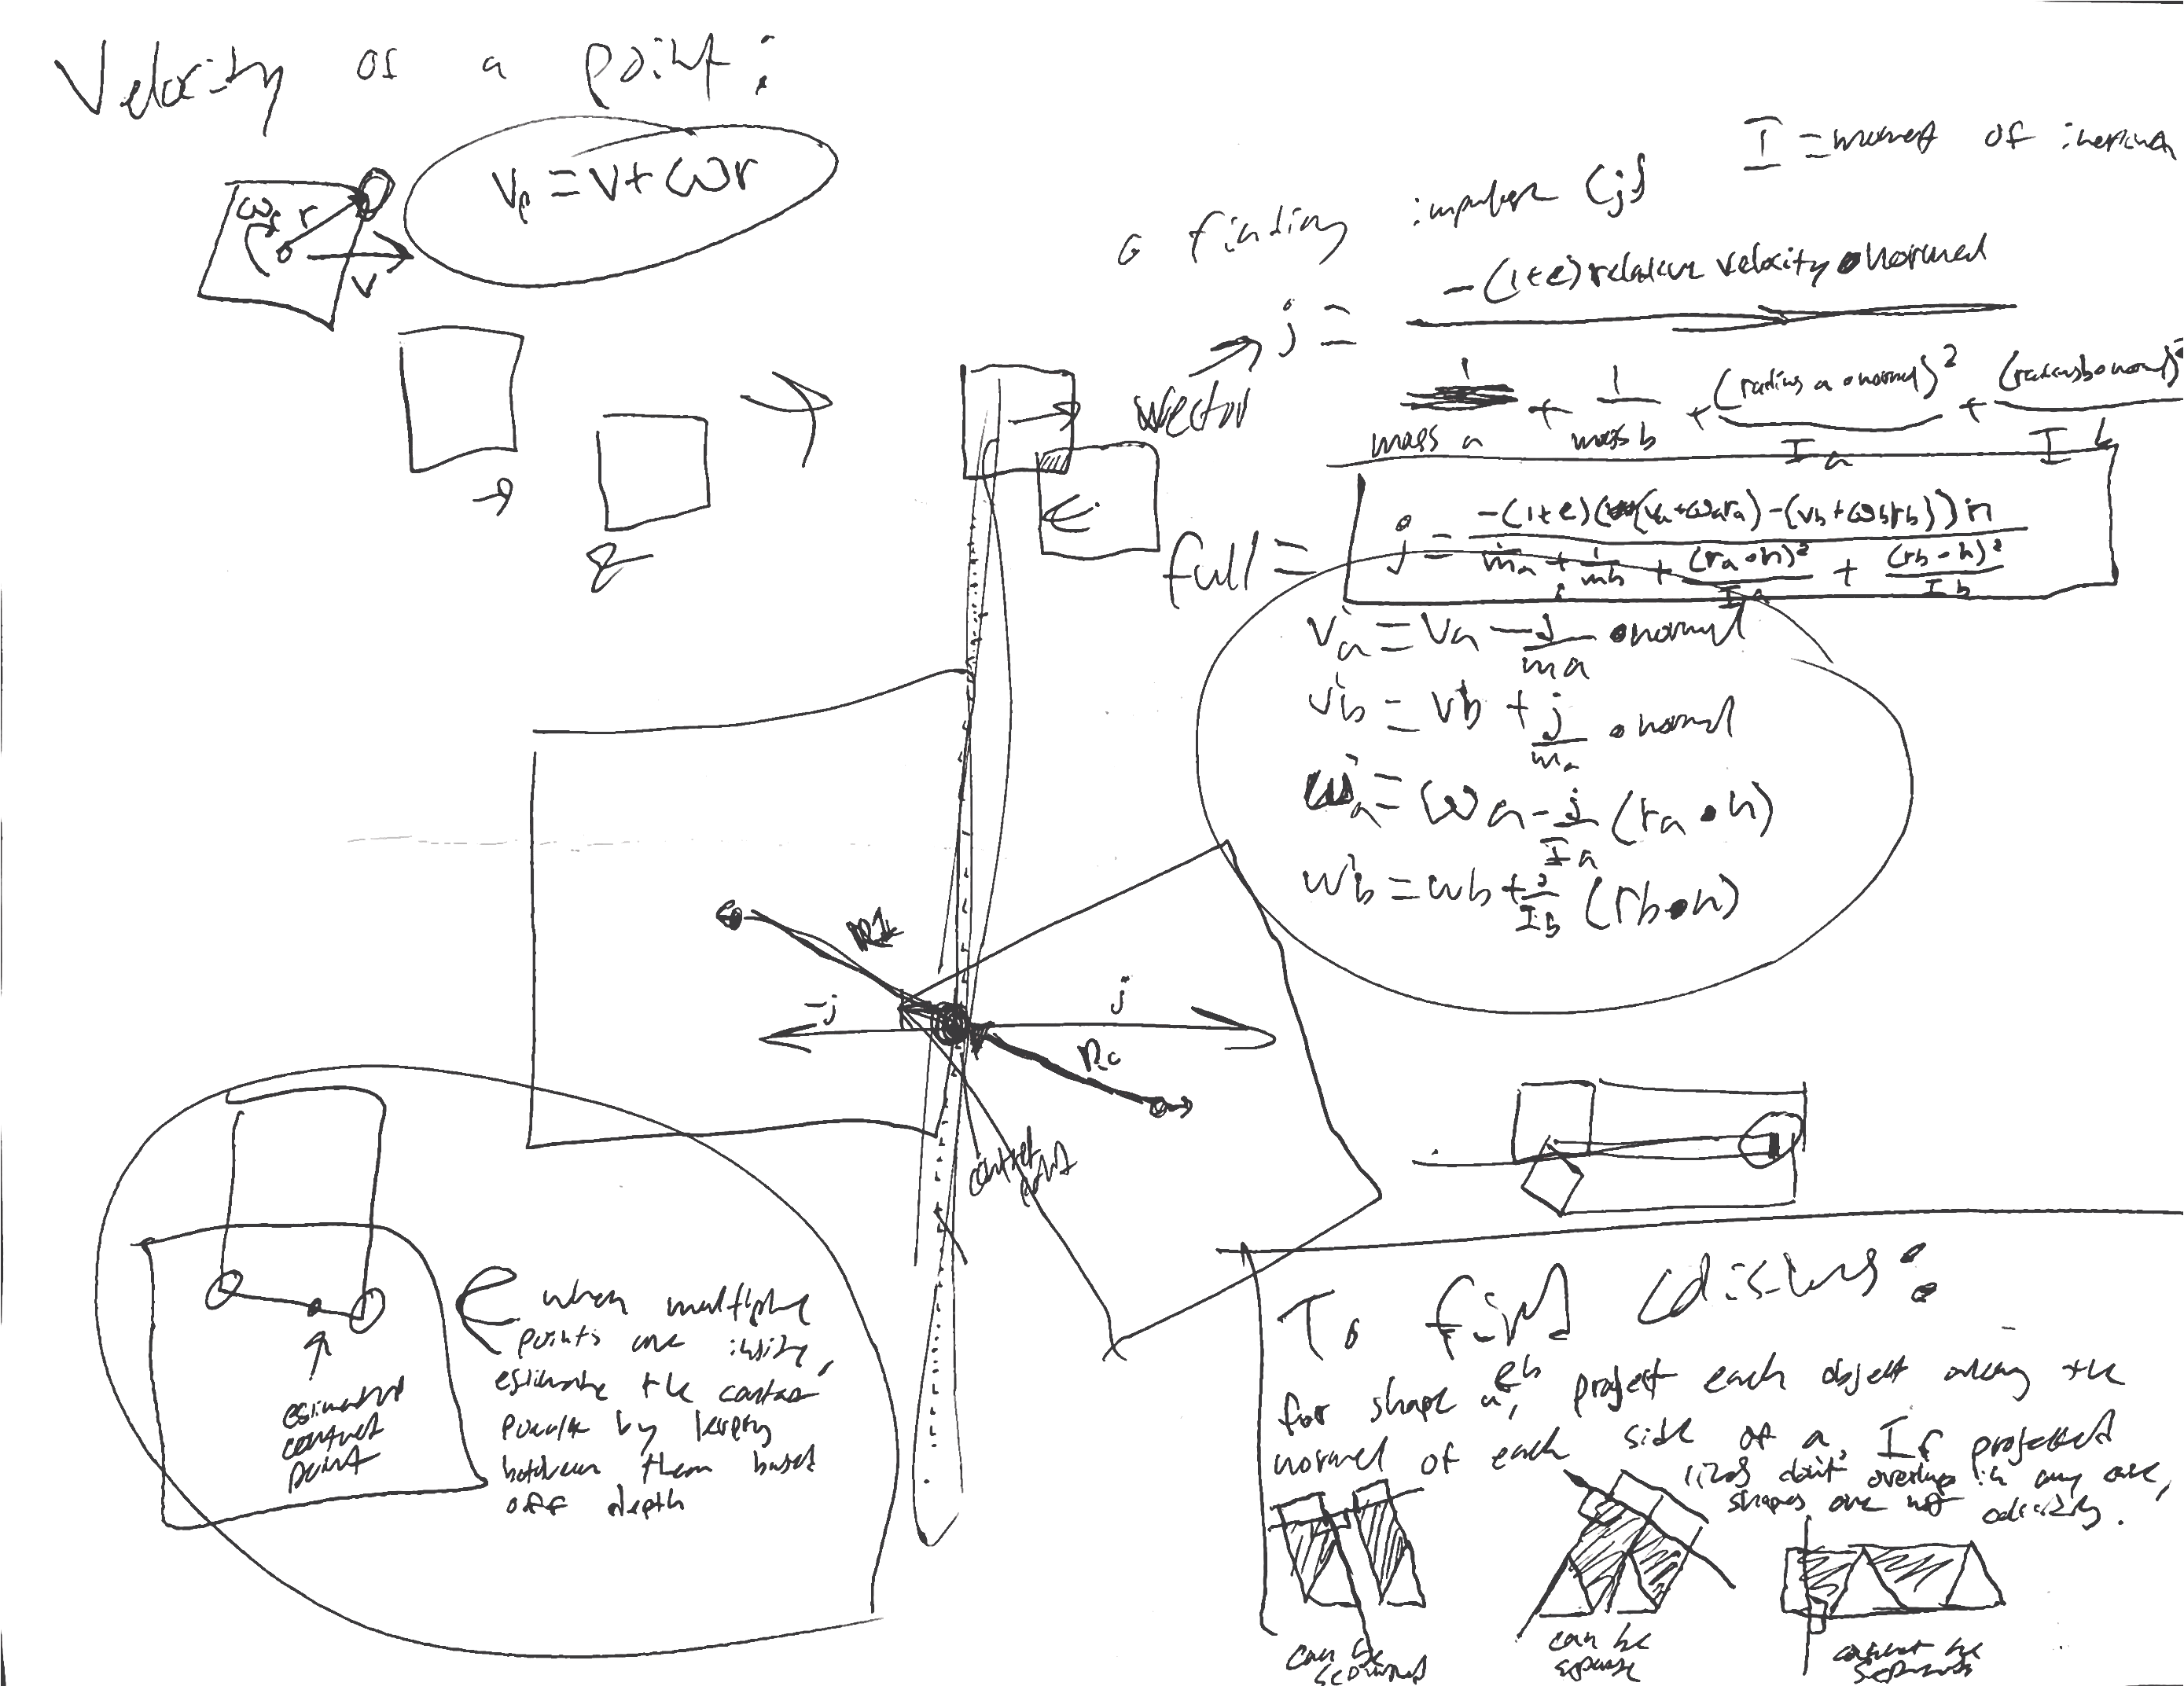 Velocity of a point:
Vp = V + ωr
ω r
V
I = moment of inertia
finding impulse (j)
vector → j = -(1+e) relative velocity • normal
1/mass a + 1/mass b + (radius a • normal)²/I a + (radius b • normal)²/I b
full = j = -(1+e)((va+ωara)-(vb+ωbrb))•n
1/ma + 1/mb + (ra•n)²/Ia + (rb•n)²/Ib
v'a = va - j/ma • normal
v'b = vb + j/ma • normal
ω'a = ωa - j/Ia (ra•n)
ω'b = ωb + j/Ib (rb•n)
-j
j
contact
point
when multiple
points are inside,
estimate the contact
by lerping
between them based
off depth
estimated
contact
point
To find :
for shape a, project each object along the
normal of each side of a. If projected
don't overlap in any one,
shapes are not
can be
can be
separate
cannot be